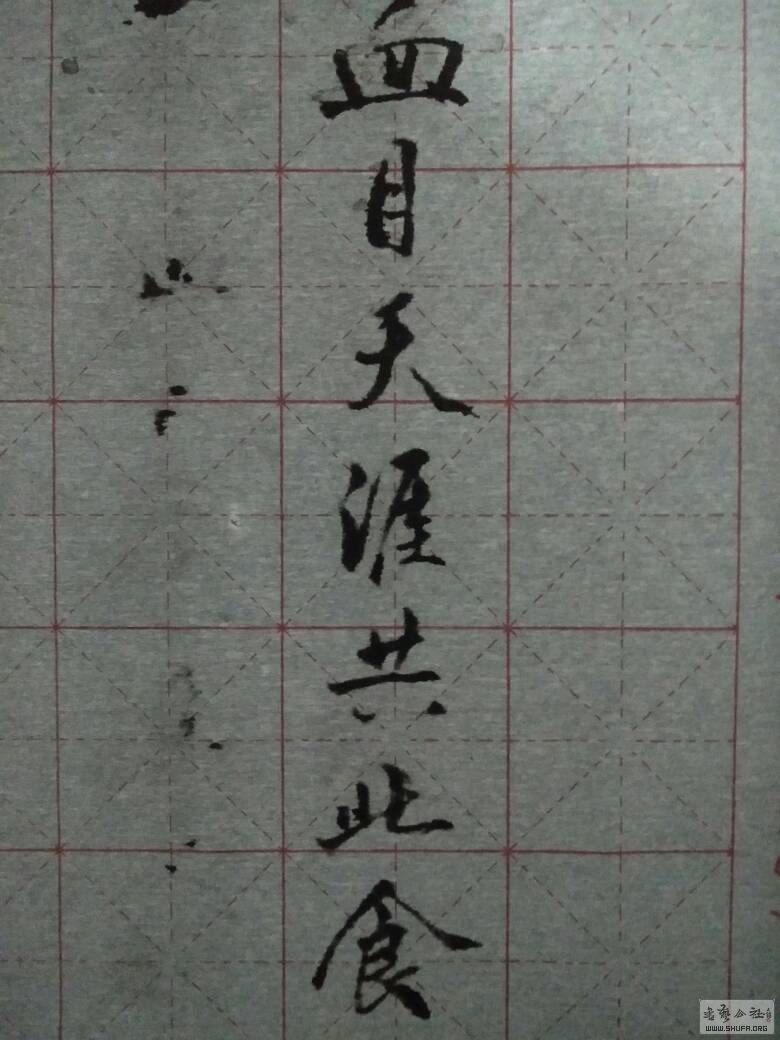 血目天涯共此食
書艺公社
WWW.SHUFA.ORG